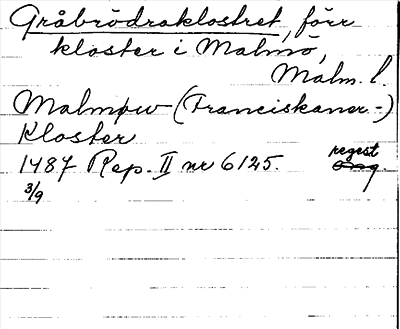 Gråbrödraklostret, förr
kloster i Malmö,
Malm. l.
Malmøw-(Franciskaner-)
Kloster
1487 Rep. II nr 6125. regest
3/9